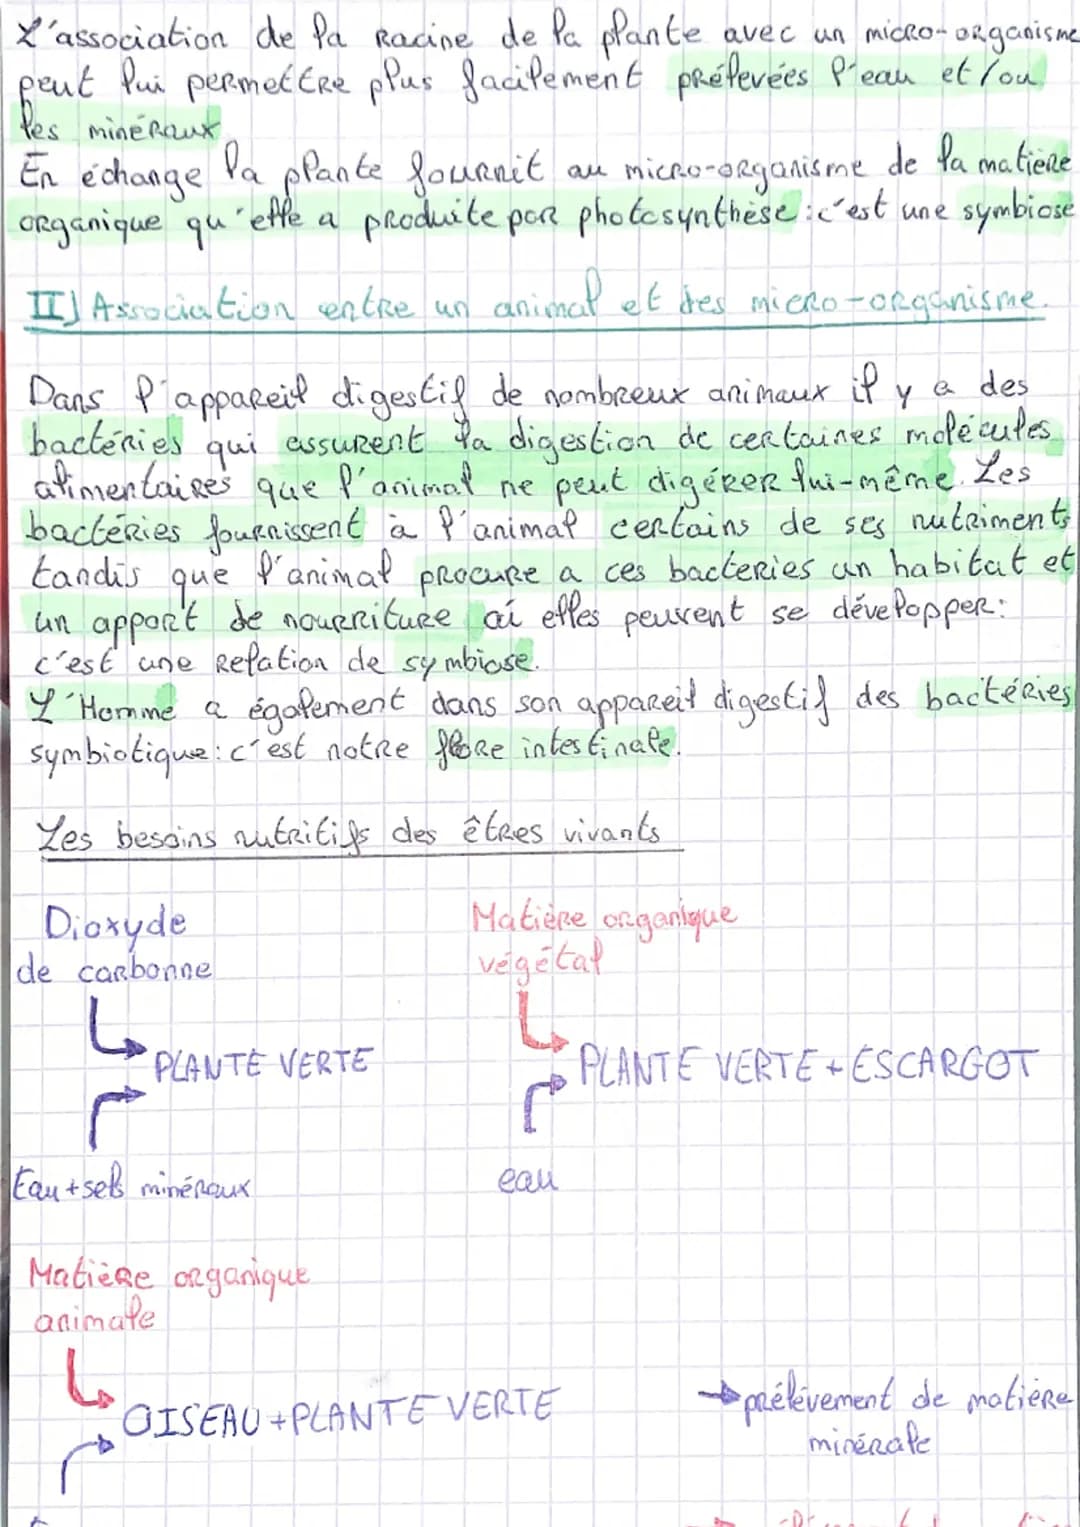 L'association de la racine de la plante avec un micro-organisme
peut lui permettre plus facilement prélevées l'eau et/ou
les minéraux
En échange la plante fournit au micro-organisme de la matière
organique qu'elle a produite par photosynthèse : c'est une symbiose
II) Association entre un animal et des micro-organisme.
Dans l'appareil digestif de nombreux animaux il y a des
bactéries qui assurent la digestion de certaines molécules
alimentaires que l'animal ne peut digérer lui-même. Les
bactéries fournissent à l'animal certains de ses nutriments
tandis que l'animal procure a ces bacteries un habitat et
un apport de nourriture où elles peuvent se développer :
c'est une relation de symbiose.
L'Homme a également dans son appareil digestif des bactéries
symbiotique : c'est notre flore intestinale.
Les besoins nutritifs des êtres vivants
Dioxyde
de carbonne
PLANTE VERTE
Eau + sels minéraux
Matière organique
végétal
PLANTE VERTE + ESCARGOT
eau
Matière organique
animale
OISEAU + PLANTE VERTE
prélèvement de matière
minérale